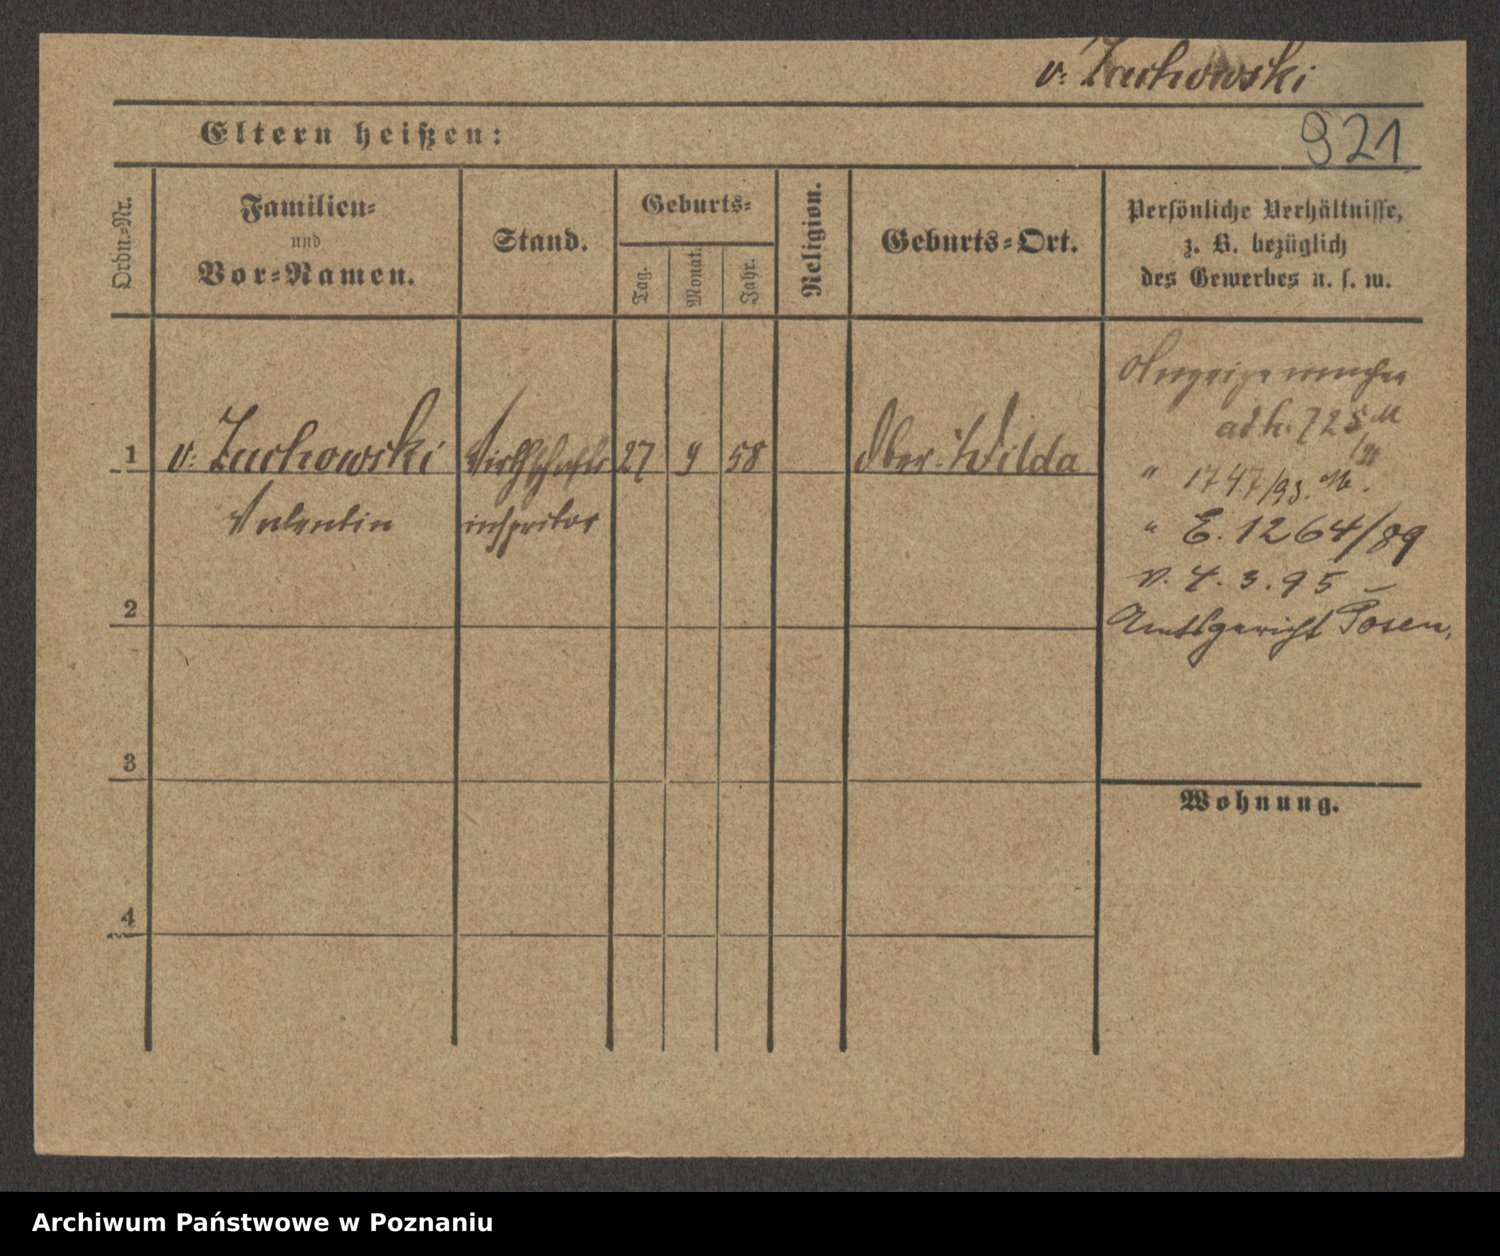 v. Zuchowski
Eltern heißen:
921
Ordn.-Nr.
Familien-
und
Vor-Namen.
Stand.
Geburts-
Tag.
Monat.
Jahr.
Religion.
Geburts-Ort.
Persönliche Verhältnisse,
z. B. bezüglich
des Gewerbes u. s. w.
1
v. Zuchowski
Valentin
Wirthschafts
inspector
27
9
58
Ober-Wilda
ad h. 725
" 1747/93.
" E. 1264/89
v. 4. 3. 95
Amtsgericht Posen.
2
3
4
Wohnung.
Archiwum Państwowe w Poznaniu